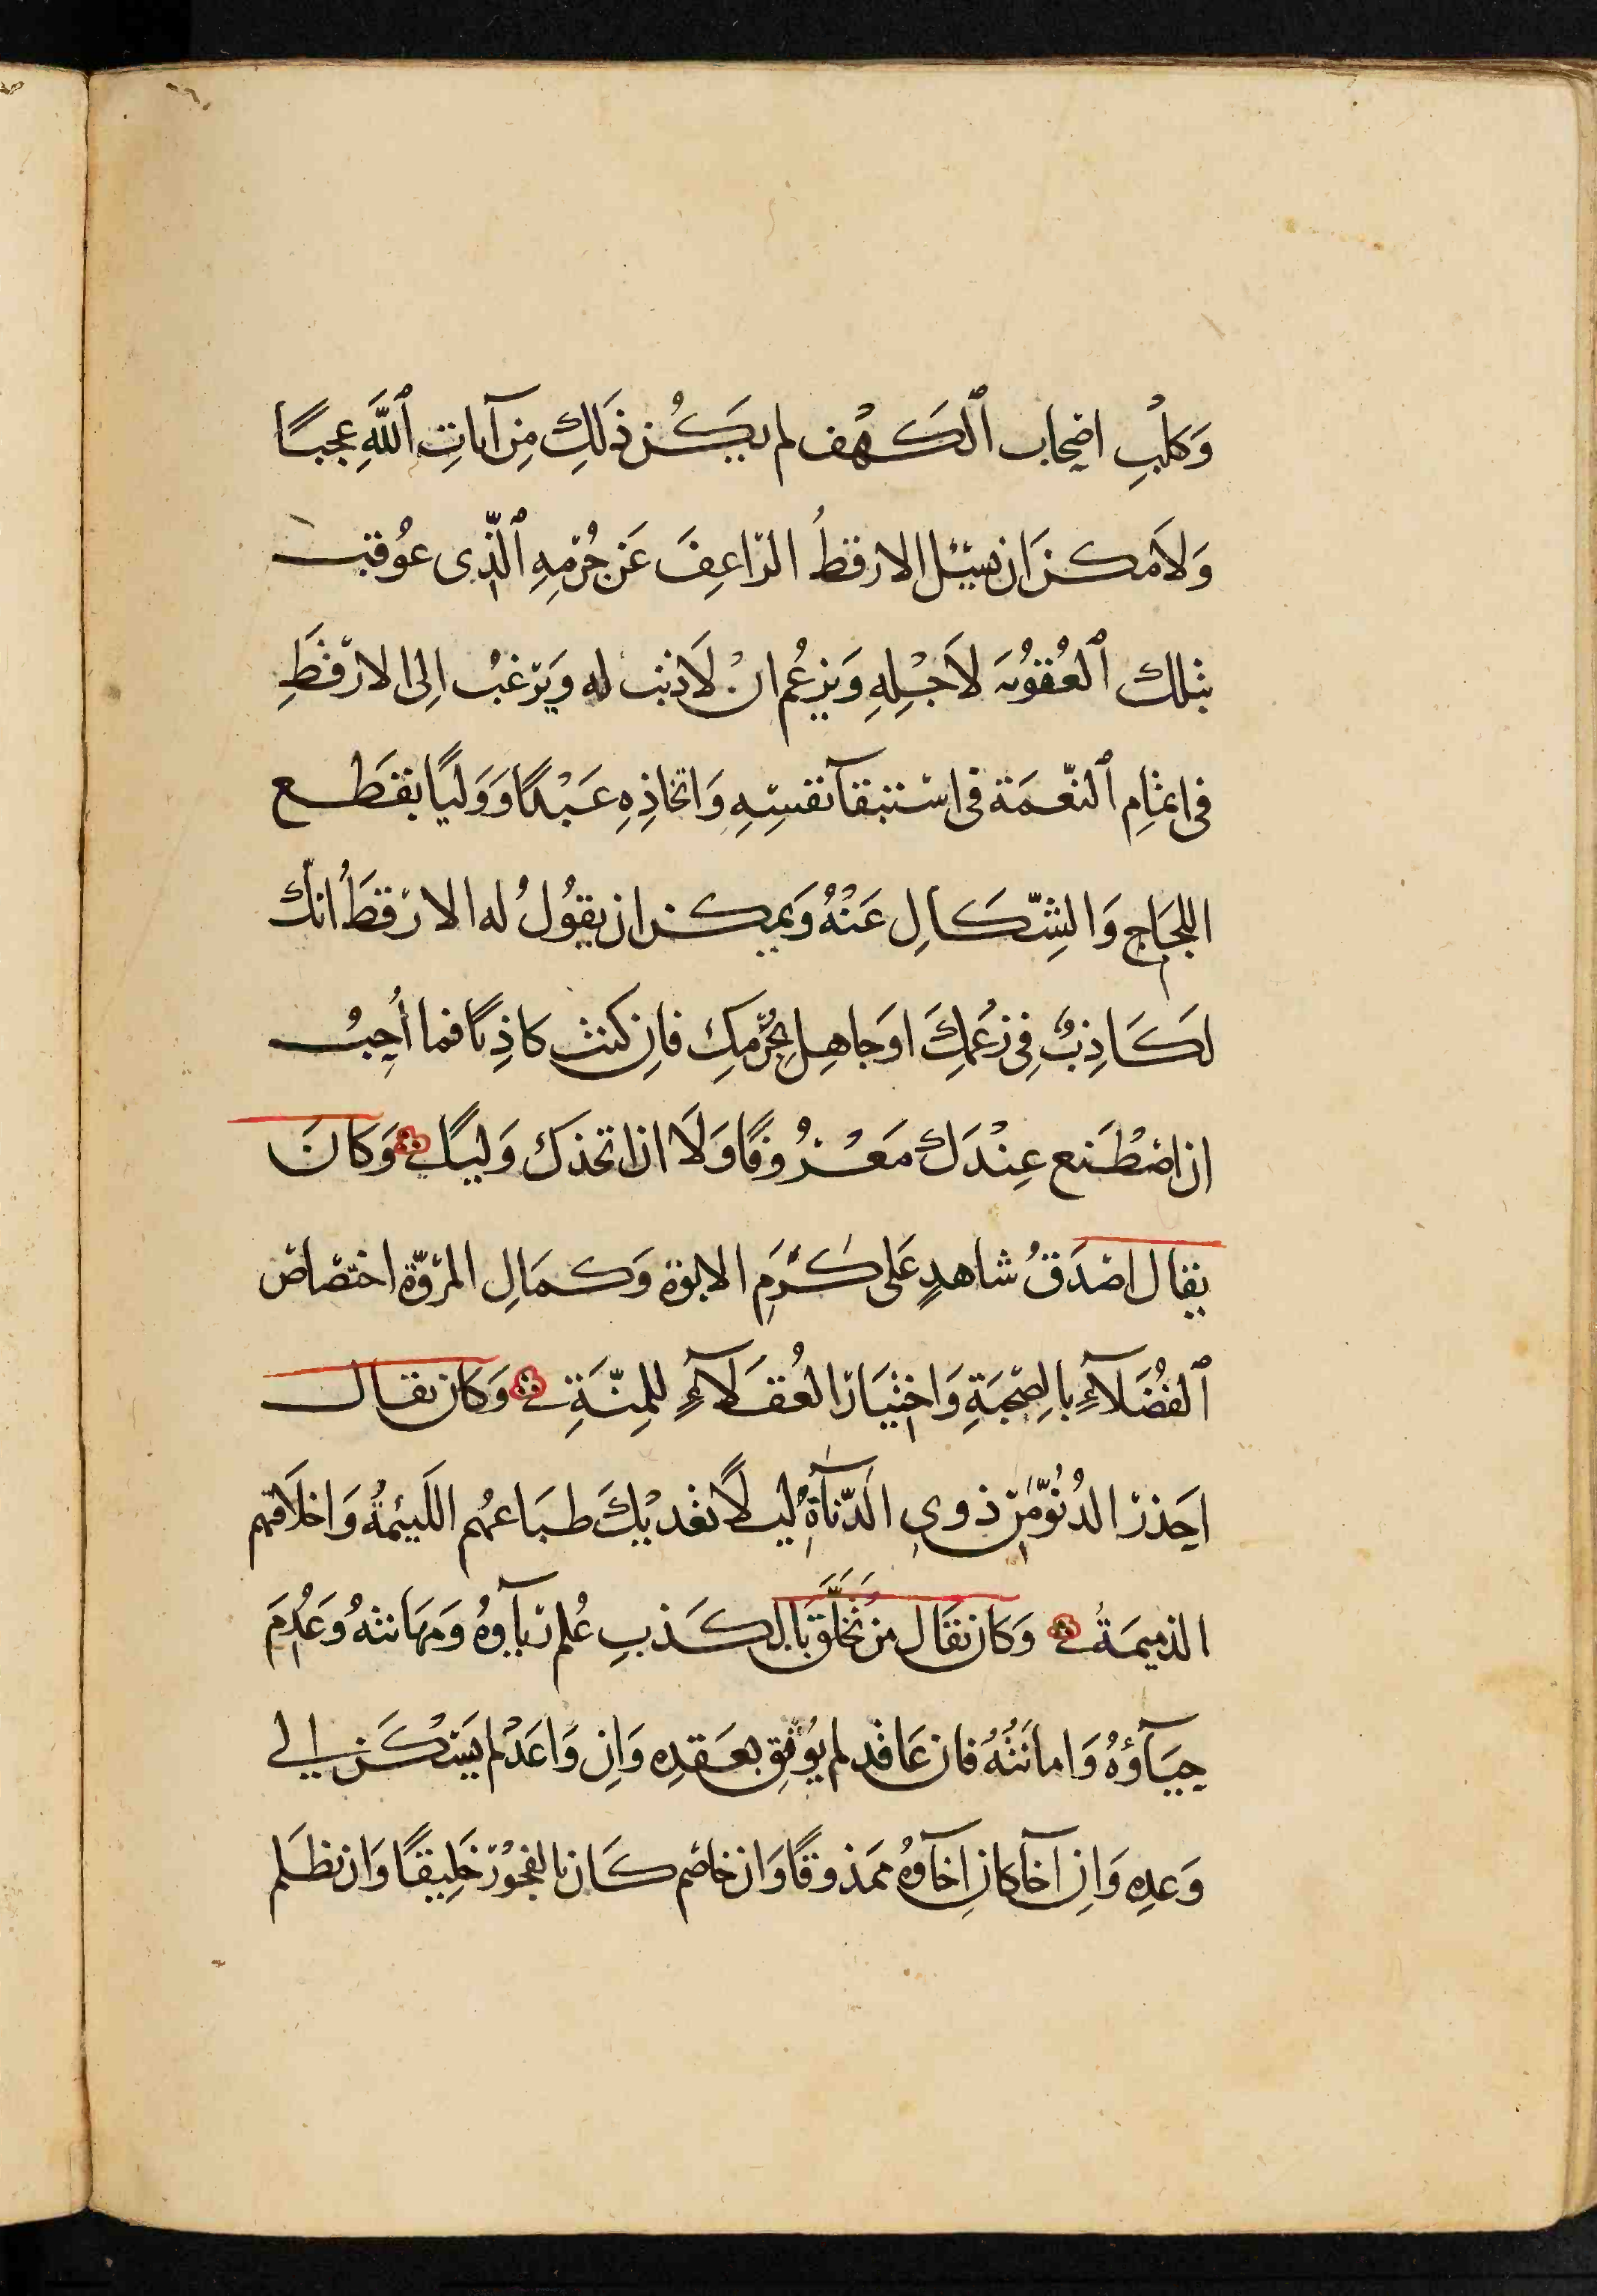 وَكلْبِ اصحاب ٱلكَهْف لم يكُن ذَلِكَ مِن آيَاتِ ٱللَّهِ عجبًا
وَلأمكن أن يسئل الارقطُ الزاعِفَ عَن جُرْمِهِ ٱلّذِى عوُقب
بتلك ٱلعُقوُبَه لأجْلِهِ وَيزعُم ان لاذنب له وَيَرْغبُ الِى الارْقطِ
فى اتمامِ ٱلنّعمَة فى استبقآ نفسِهِ وَاتخاذِهِ عَبْدًا وَوَليًا بقطع
اللجَاج وَالشِّكَالِ عَنْهُ وَيمكن ان يقوُلُ له الارْقطَ انّك
لكَاذِبٌ فِى زعَمكَ اوجاهِل بجُرْمِكَ فاِن كنت كاذِبًا فما أُحِبُ
ان اصْطَنع عِنْدَكَ مَعْرُوفًا وَلَا ان اتخذك وَليًا وَكَانَ
يقال اصْدَقُ شاهدٍ عَلى كَرَمِ الابوة وَكمَالِ المرْوّة اختصاص
ٱلفُضَلآءِ بالصِّحبَةِ وَاخْتيَارْ العُقَلآءِ للمِنّةِ وَكان يقال
احَذرْ الدُنوّ مّن ذوى الدّنآةْ ليلاً تعْديْكَ طبَاعُهم اللَئيمْةُ وَاخلَاقهم
الذميمَةُ وَكان يقَال من تخلّقَ بالكَذبِ عُلم ربآوهُ وَمهَانتهُ وَعُدِمَ
حيَآؤهُ وَامانَتُهُ فان عَاقد لم يُوثق بعَقدِه وَاِن وَاعَدْ لم يسْكَن الى
وَعدِه وَاِن آخَا كان اِخآوهُ ممذوقًا وَان خاصْم كَان بالفجوْرْ خَلِيقًا وَان تظلم